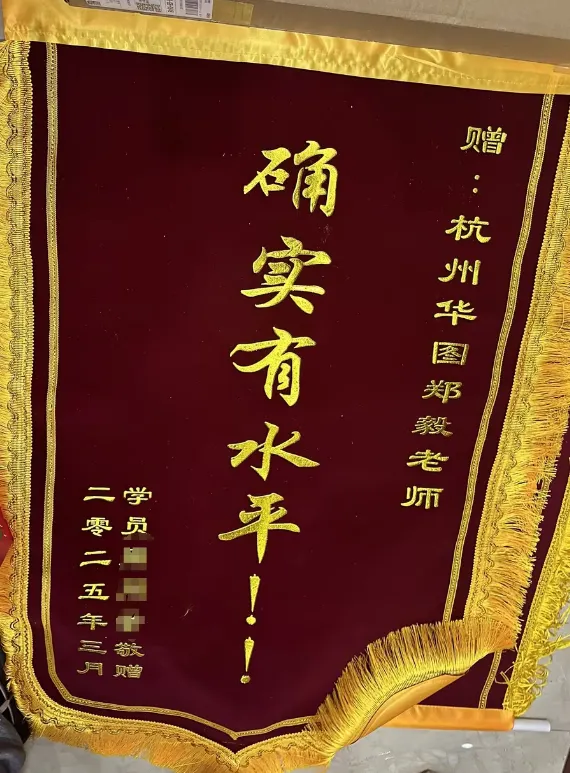 赠：杭州华图郑毅老师
确实有水平！！
学员敬赠
二零二五年三月